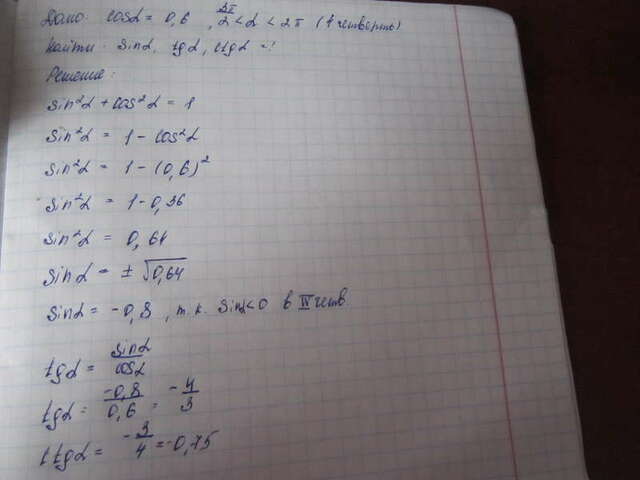 Дано: cosα = 0,6, 3π/2 < α < 2π (4 четверть)
Найти: sinα, tgα, ctgα = ?
Решение:
sin²α + cos²α = 1
sin²α = 1 - cos²α
sin²α = 1 - (0,6)²
sin²α = 1 - 0,36
sin²α = 0,64
sinα = ± √0,64
sinα = -0,8, т.к. sinα<0 в IV четв.
tgα = sinα/cosα
tgα = -0,8/0,6 = -4/3
ctgα = -3/4 = -0,75